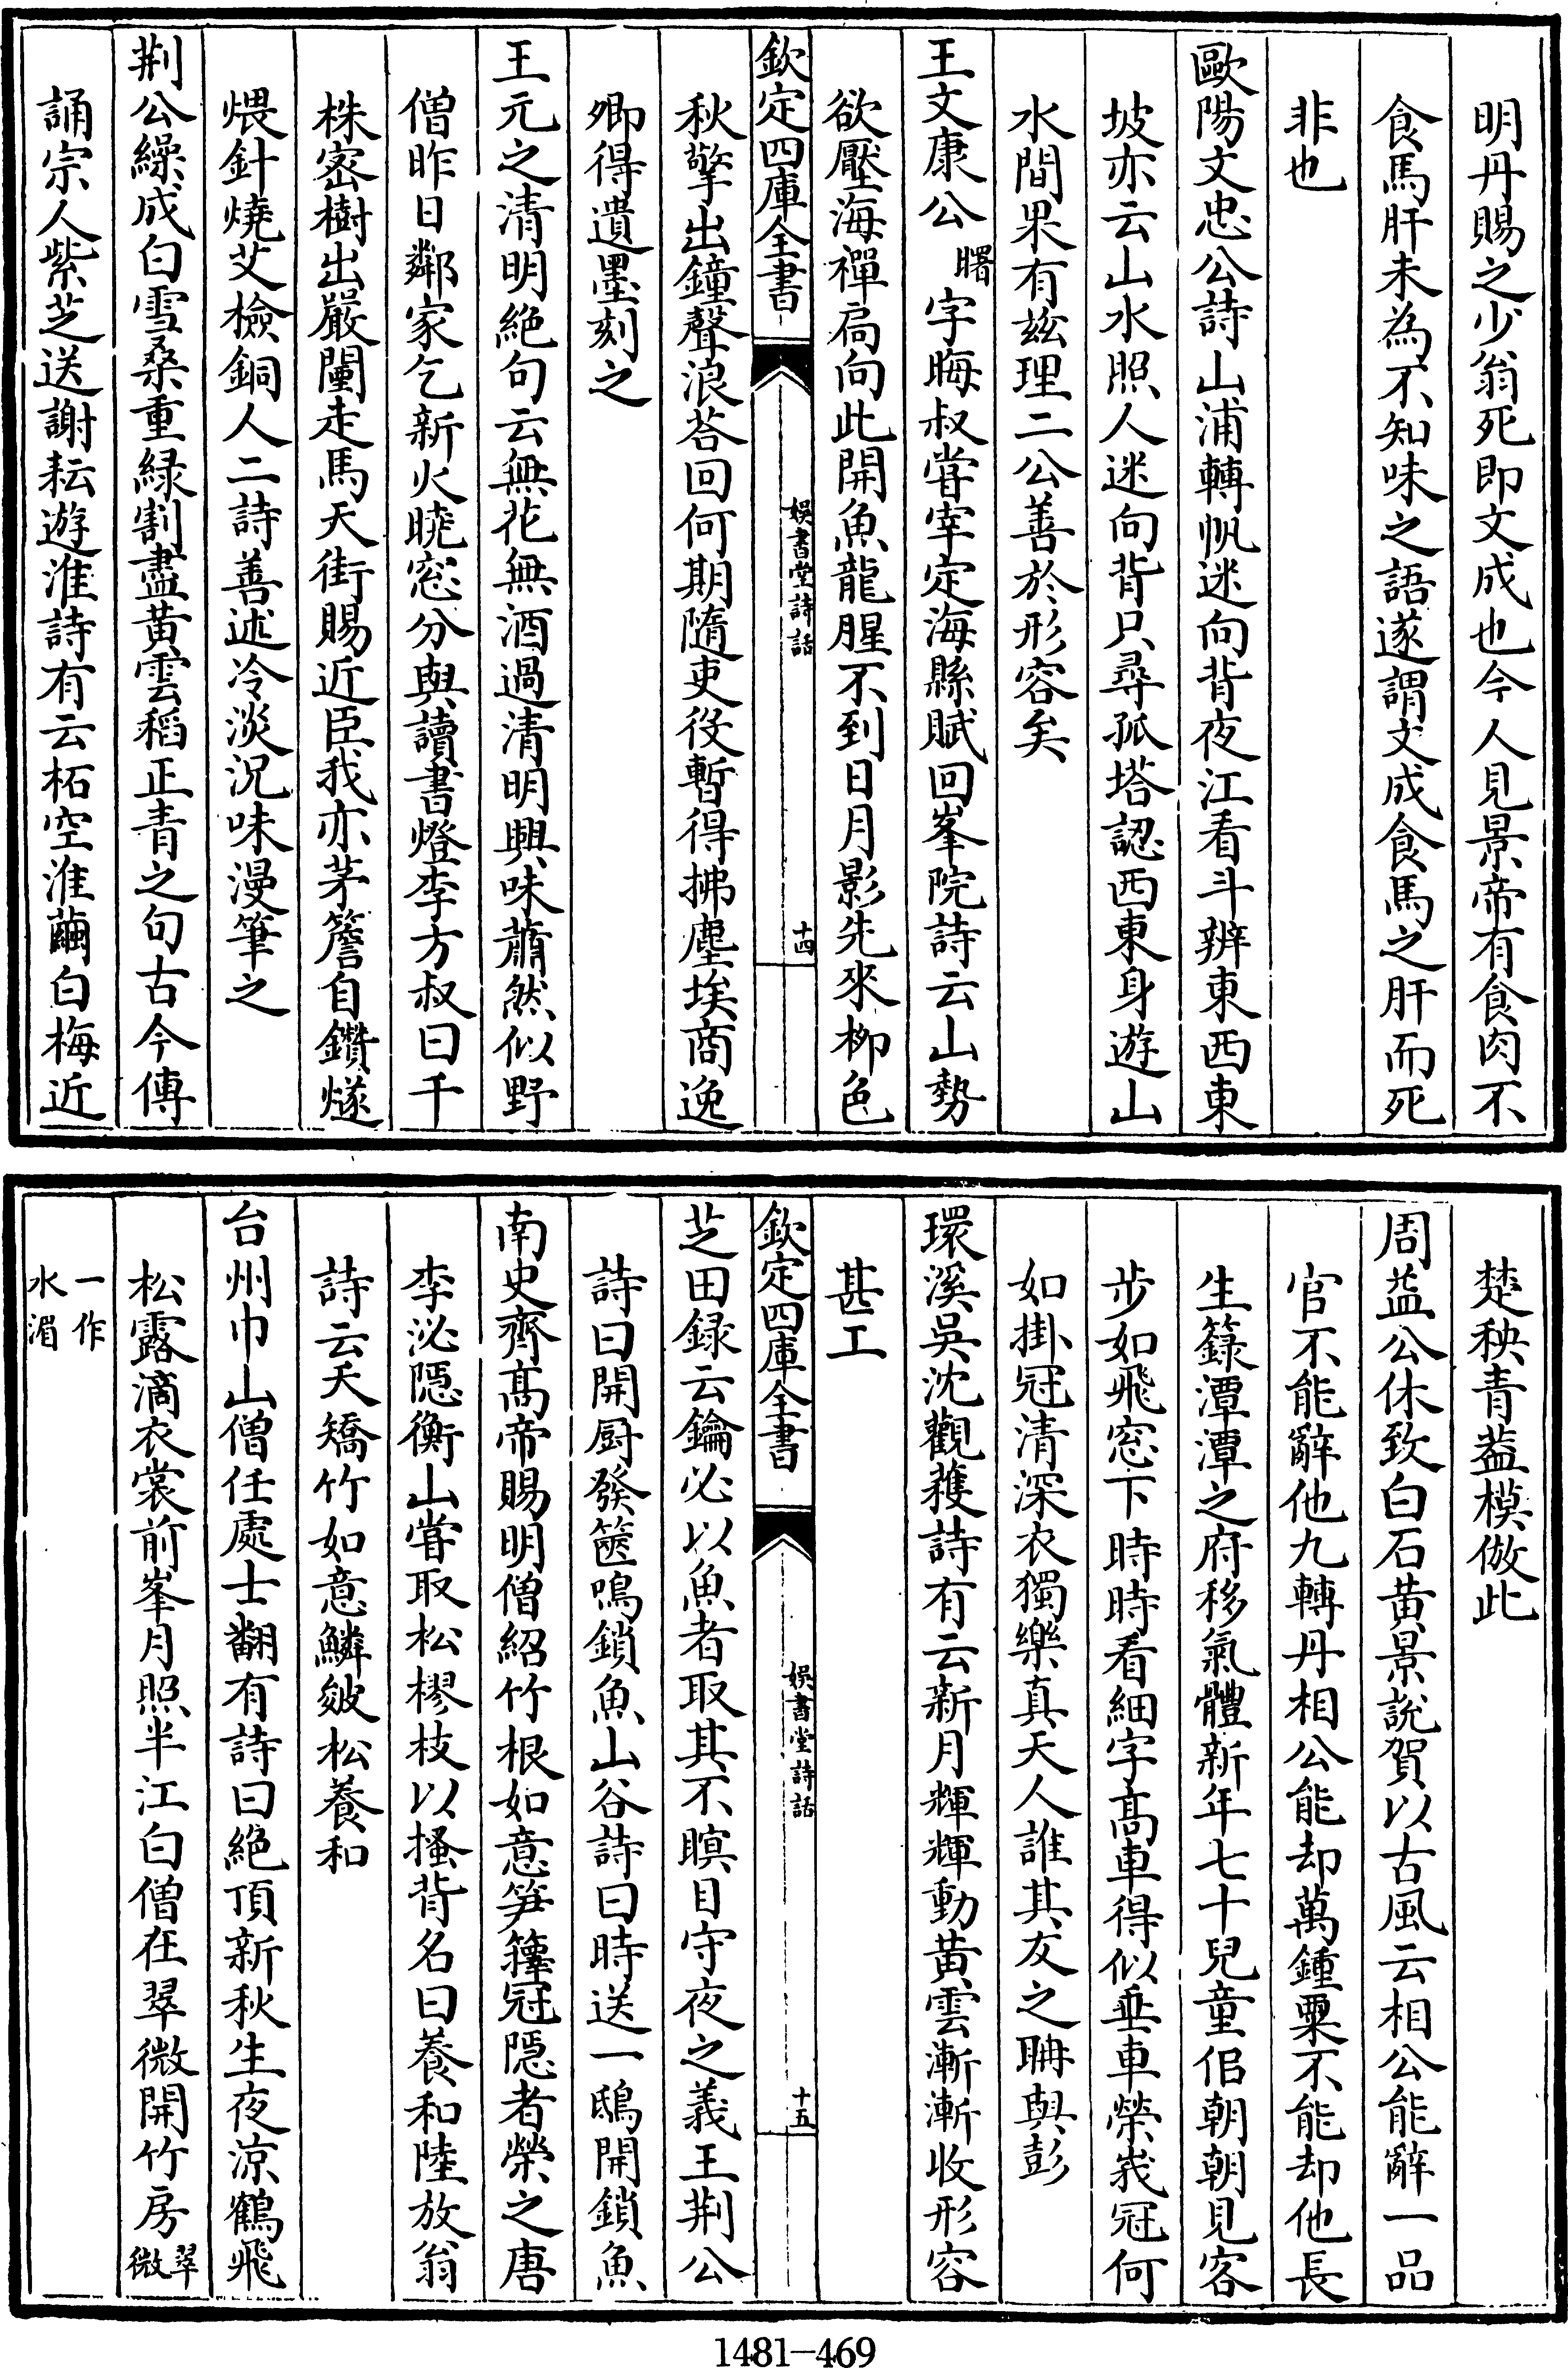 明丹賜之少翁死即文成也今人見景帝有食肉不
食馬肝未為不知味之語遂謂文成食馬之肝而死
非也
歐陽文忠公詩山浦轉帆迷向背夜江看斗辨東西東
坡亦云山水照人迷向背只尋孤塔認西東身遊山
水間果有茲理二公善於形容矣
王文康公曙字晦叔嘗宰定海縣賦回峯院詩云山勢
欲壓海禪扃向此開魚龍腥不到日月影先來柳色
欽定四庫全書
娛書堂詩話
十四
秋擎出鐘聲浪荅回何期隨吏役暫得拂塵埃商逸
卿得遺墨刻之
王元之清明絶句云無花無酒過清明興味蕭然似野
僧昨日鄰家乞新火曉窓分與讀書燈李方叔曰千
株宻樹出嚴闉走馬天街賜近臣我亦茅簷自鑽燧
煨針燒艾檢銅人二詩善述冷淡況味漫筆之
荆公繰成白雪桑重緑割盡黄雲稻正青之句古今傳
誦宗人紫芝送謝耘遊淮詩有云柘空淮繭白梅近
楚秧青葢模倣此
周益公休致白石黄景說賀以古風云相公能辭一品
官不能辭他九轉丹相公能却萬鍾粟不能却他長
生籙潭潭之府移氣體新年七十兒童侣朝朝見客
步如飛窓下時時看細字髙車得似垂車榮峩冠何
如掛冠清深衣獨樂真天人誰其友之聃與彭
環溪吳沈觀穫詩有云新月輝輝動黄雲漸漸收形容
甚工
欽定四庫全書
娛書堂詩話
十五
芝田録云鑰必以魚者取其不瞑目守夜之義王荆公
詩曰開厨發篋鳴鎖魚山谷詩曰時送一鴟開鎖魚
南史齊髙帝賜明僧紹竹根如意笋籜冠隠者榮之唐
李泌隠衡山嘗取松樛枝以搔背名曰養和陸放翁
詩云夭矯竹如意鱗皴松養和
台州巾山僧任處士翻有詩曰絶頂新秋生夜凉鶴飛
松露滴衣裳前峯月照半江白僧在翠微開竹房翠微
一作水湄
1481—469